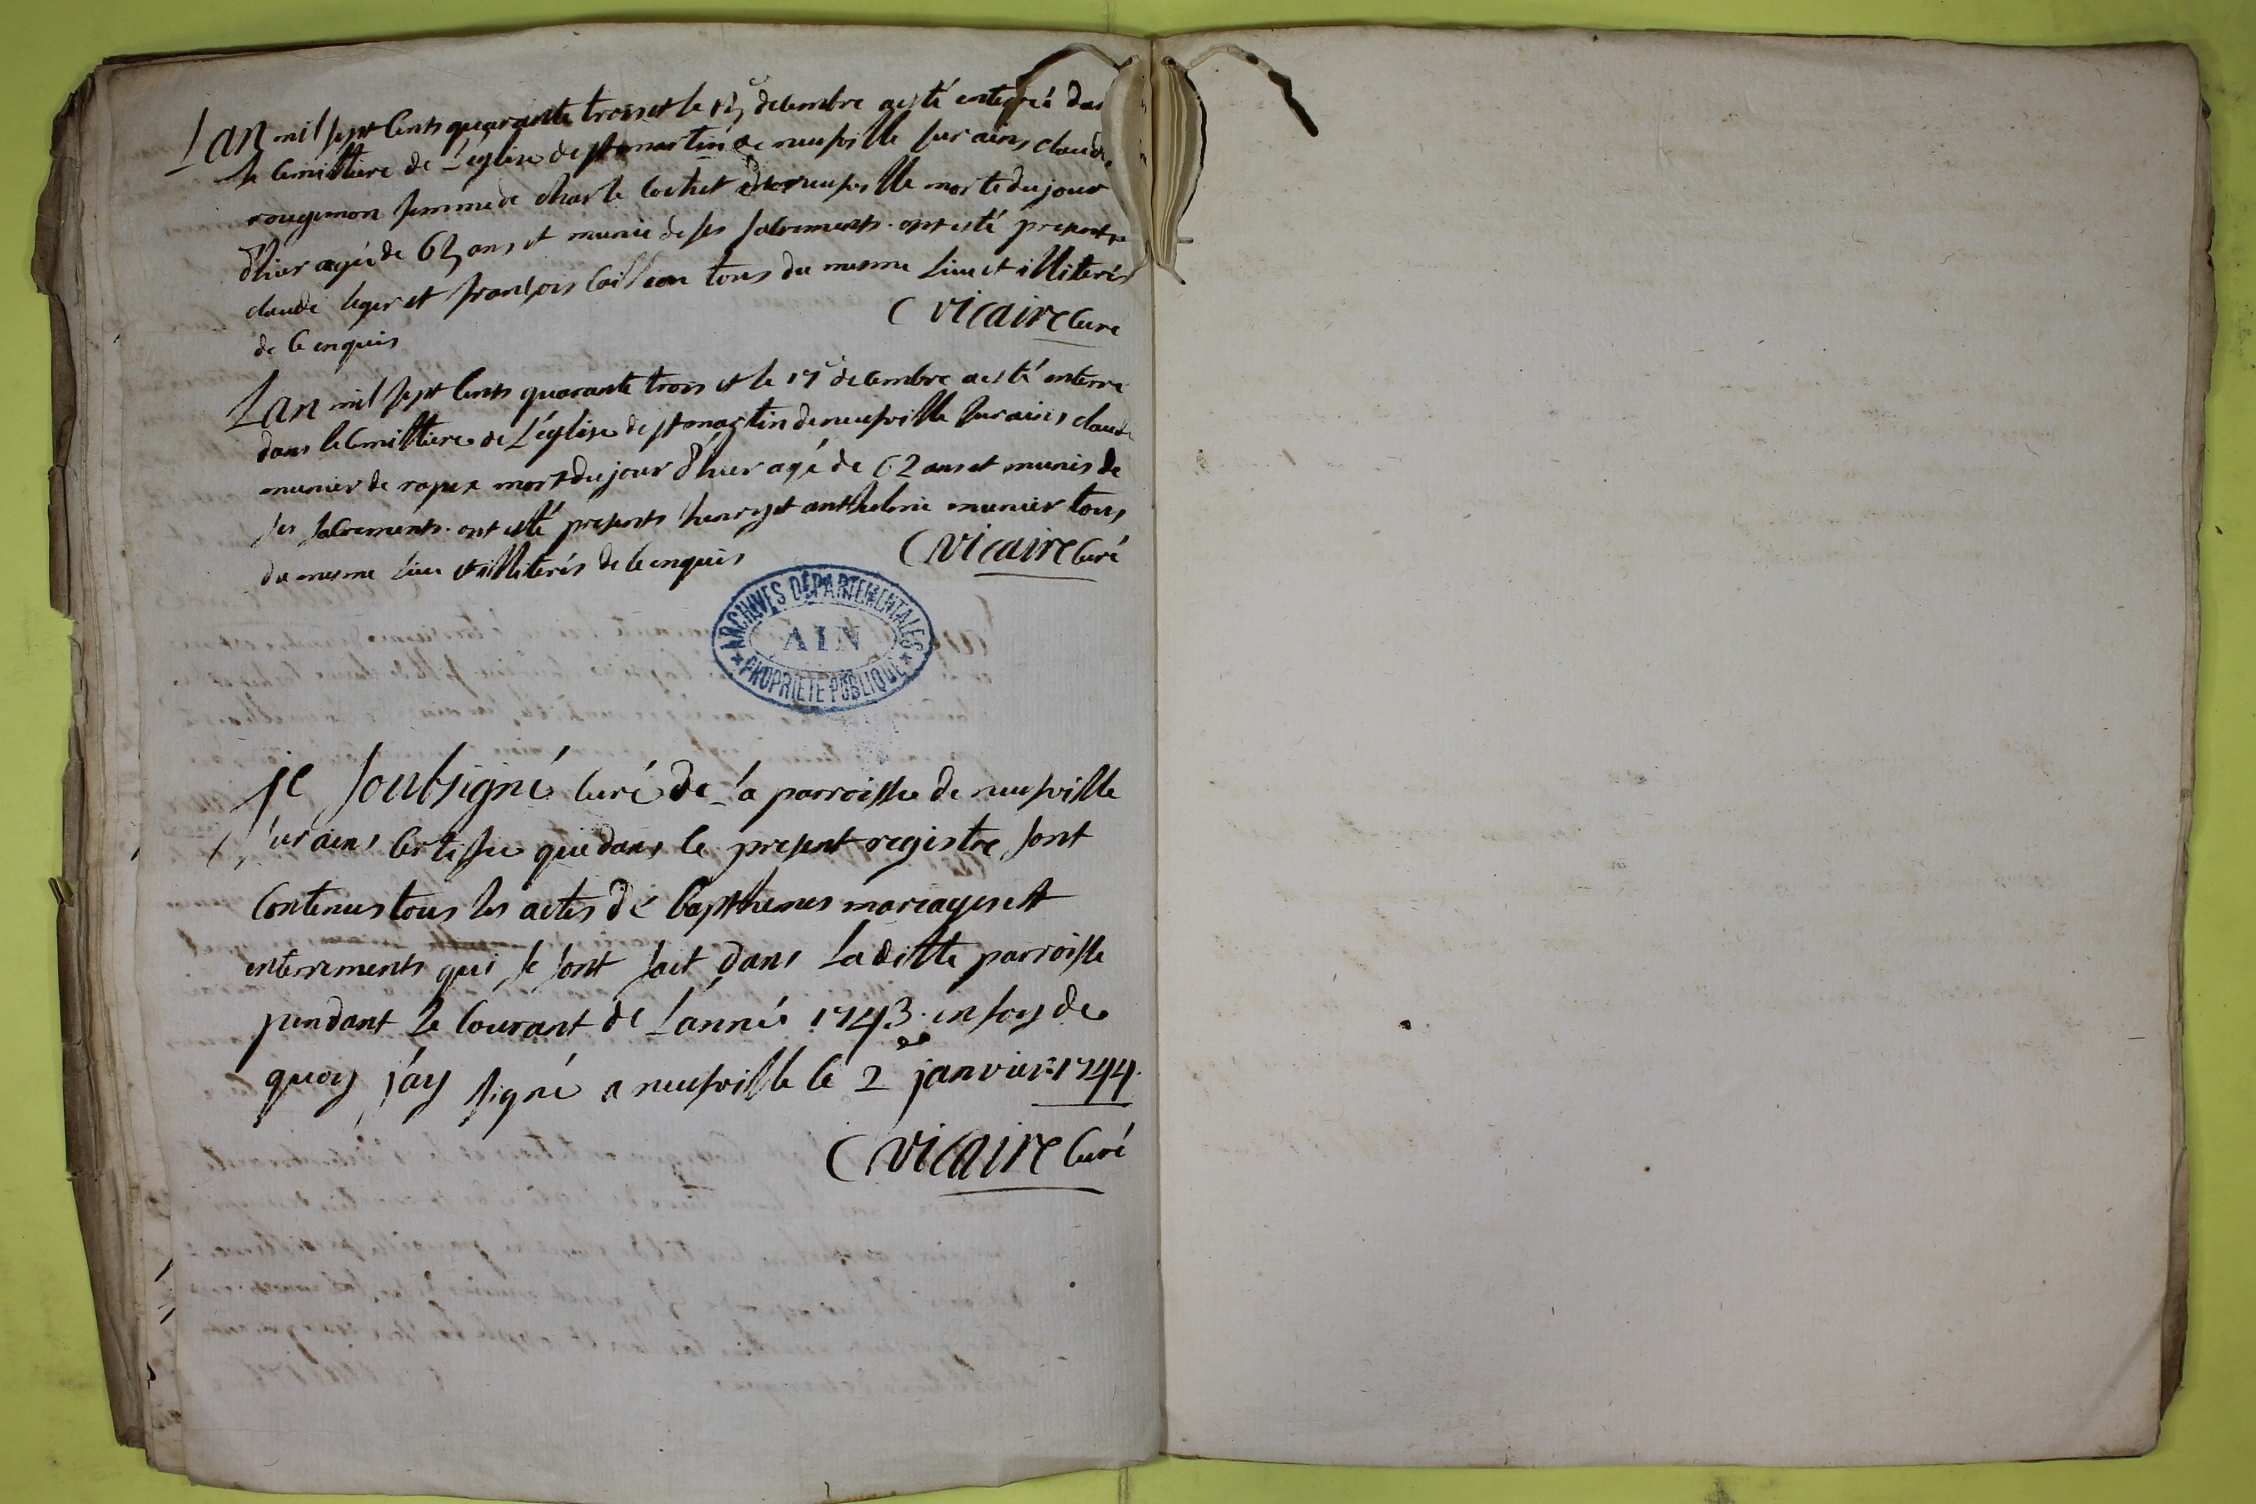 Lan mil sept cents quarante trois et le decembre a esté enterrée dans
le cimittiere de l'églize de st martin de neufville sur ains claudi
rougemon femme de charle cochet de neufville morte du jour
d'hier agée de ans et munie de ses sacrements. ont esté presents
claude leger et françois tous du mesme lieu et illiterés
de ce enquis
C vicaire curé
Lan mil sept cents quarante trois et le 17e decembre a esté enterré
dans le cimittiere de L'églize de st martin de neufville sur ains claude
munier de rapex mort du jour d'hier agé de 62 ans et munis de
ses sacrements. ont esté presents henry et anthelme munier tous
du mesme lieu et illiterés de ce enquis
C vicaire curé
ARCHIVES DÉPARTEMENTALES
AIN
PROPRIÉTÉ PUBLIQUE
je soubsigné curé de la parroisse de neufville
sur ains certifie que dans le present registre sont
contenus tous les actes de bapthemes mariages et
enterrements qui se sont fait dans laditte parroisse
pendant le courant de l'année 1743. en foy de
quoy j'ay signé a neufville le 2 janvier 1744.
C vicaire curé